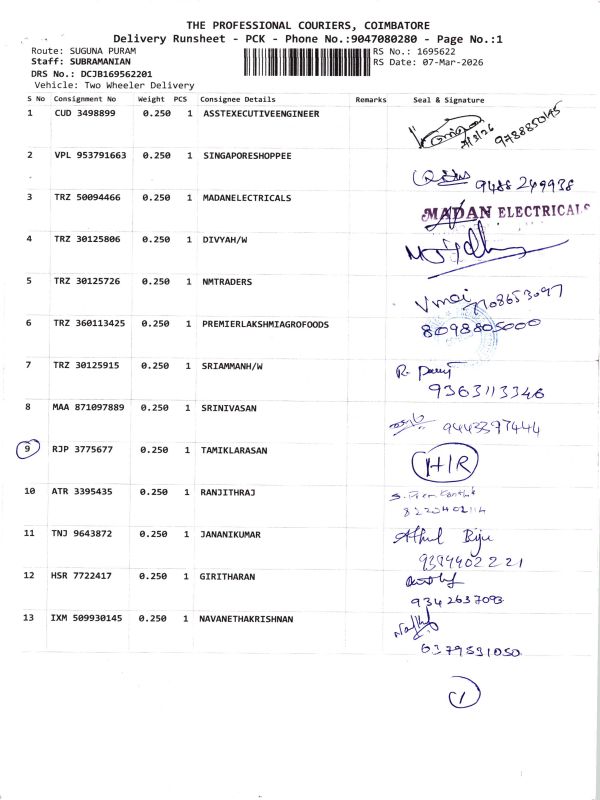 THE PROFESSIONAL COURIERS, COIMBATORE
Delivery Runsheet - PCK - Phone No.:9047080280 - Page No.:1
Route: SUGUNA PURAM RS No.: 1695622
Staff: SUBRAMANIAN RS Date: 07-Mar-2026
DRS No.: DCJB169562201
Vehicle: Two Wheeler Delivery
S No Consignment No Weight PCS Consignee Details Remarks Seal & Signature
1 CUD 3498899 0.250 1 ASSTEXECUTIVEENGINEER
9788850145
2 VPL 953791663 0.250 1 SINGAPORESHOPPEE
9488249938
3 TRZ 50094466 0.250 1 MADANELECTRICALS
MADAN ELECTRICALS
4 TRZ 30125806 0.250 1 DIVYAH/W
5 TRZ 30125726 0.250 1 NMTRADERS
6 TRZ 360113425 0.250 1 PREMIERLAKSHMIAGROFOODS
8098805000
7 TRZ 30125915 0.250 1 SRIAMMANH/W
9363113346
8 MAA 871097889 0.250 1 SRINIVASAN
9443397444
9 RJP 3775677 0.250 1 TAMIKLARASAN
HIR
10 ATR 3395435 0.250 1 RANJITHRAJ
11 TNJ 9643872 0.250 1 JANANIKUMAR
Athul Biju
9394402221
12 HSR 7722417 0.250 1 GIRITHARAN
9342637093
13 IXM 509930145 0.250 1 NAVANETHAKRISHNAN
6379531050
1